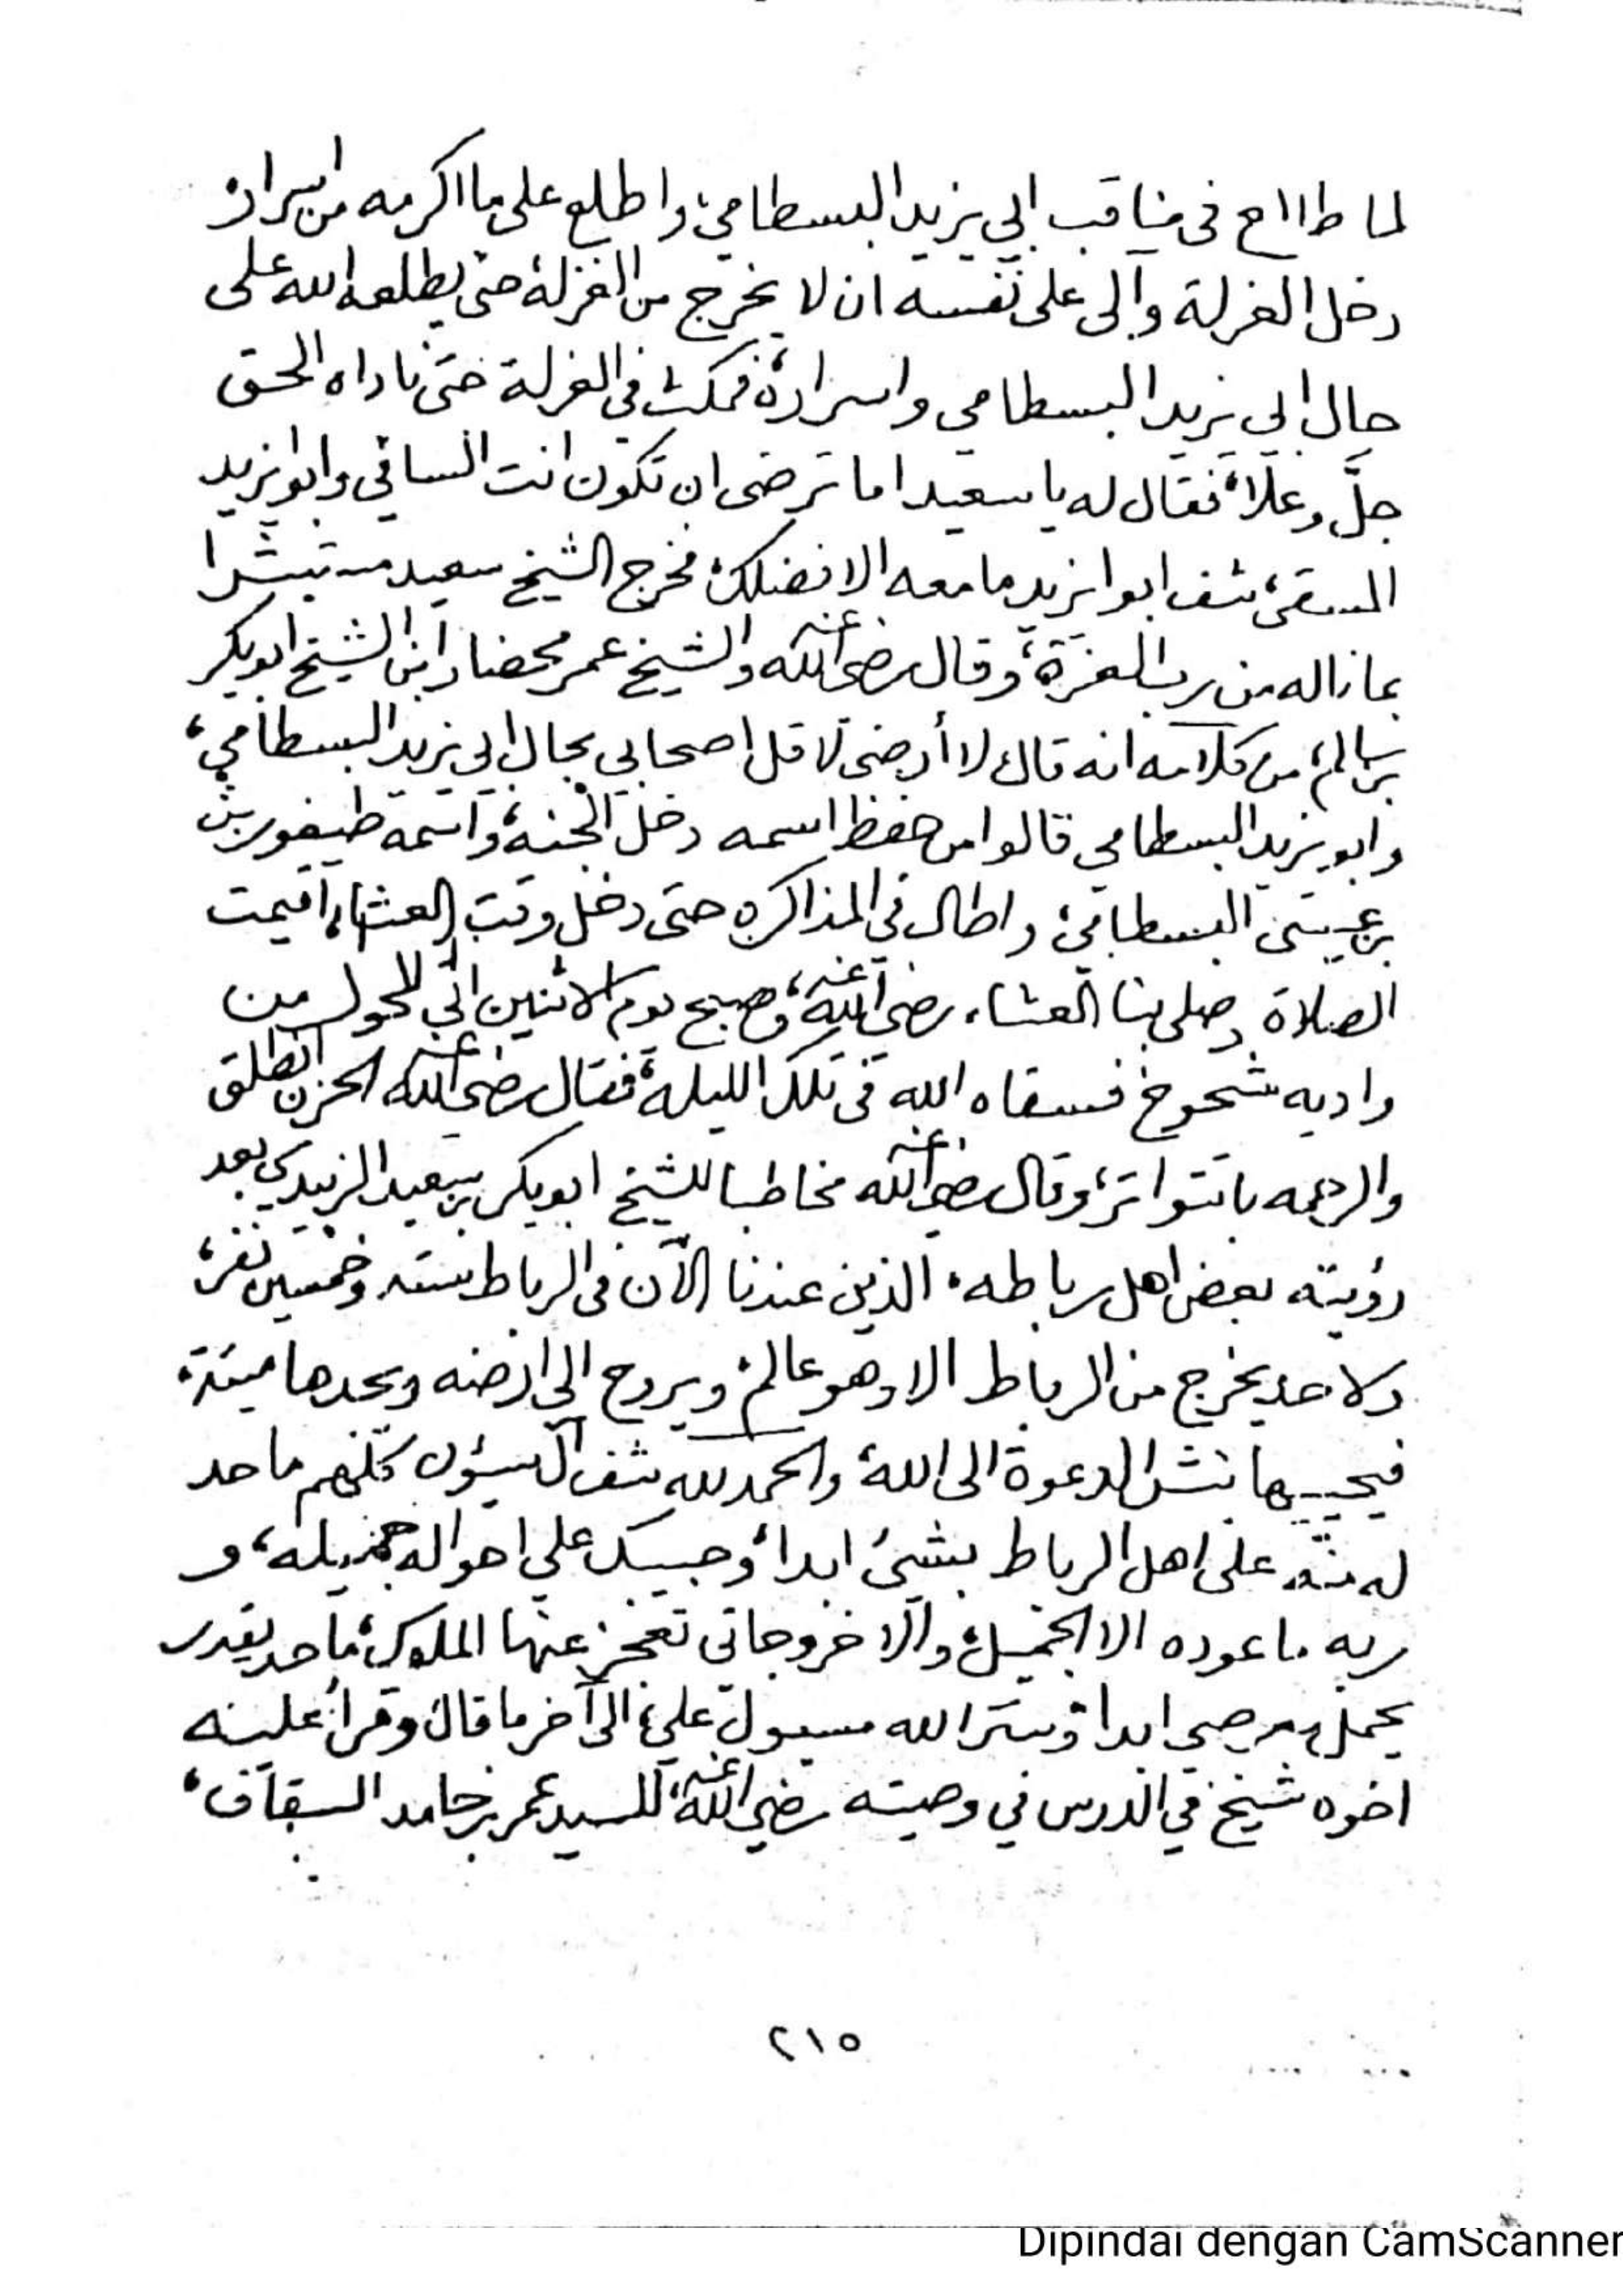 لما طالع في مناقب ابي يزيد البسطامي، واطلع على ما اكرمه من اسرار
دخل العزلة وآلى على نفسه ان لا يخرج من العزلة حتى يطلعه الله على
حال ابي يزيد البسطامي واسراره، فمكث في العزلة حتى ناداه الحق
جلَّ وعلا، فقال له يا سعيد اما ترضى ان تكون انت الساقي وابوا يزيد
المسقى، شف ابوا يزيد ما معه الا فضلك، فخرج الشيخ سعيد مستبشرا
بما ناله من رب العزة، وقال رضي الله عنه والشيخ عمر محضار ابن الشيخ ابوبكر
بن سالم، من كلامه انه قال لا أرضى لاقل اصحابي بحال ابي يزيد البسطامي،
وابو يزيد البسطامي قالوا من حفظ اسمه دخل الجنة، واسمه طيفور بن
بن عيسى البسطامي، واطال في المذاكره حتى دخل وقت العشاء، اقيمت
الصلاة وصلى بنا العشاء، رضي الله عنه، وصبح يوم الاثنين الى للحول من
واديه شحوخ فسقاه الله في تلك الليلة، فقال رضي الله عنه الحزن انطلق
والرحمه باتتواتر، وقال رضي الله عنه مخاطبا للشيخ ابوبكر بن سعيد الزبيدي بعد
رؤيته بعض اهل رباطه، الذين عندنا الآن في الرباط سته وخمسين نفر،
ولا حد يخرج من الرباط الا وهو عالم، ويروح الى ارضه ويجدها ميتة،
فيحييها بنشر الدعوة الى الله، والحمد لله شف كلهم ما حد
له منّه على اهل الرباط بشيء ابدا، وحبيبك على احواله جميله، و
ربه ما عوده الا الجميل، والا خروجاتي تعجز عنها الملوك، ما حد يقدر
يحمل ابدا، وستر الله مسبول علي، الى آخر ما قال، وقرأ عليه
اخوه شيخ في الدرس في وصيته رضي الله عنه، للسيد عمر بن حامد السقاف،
٢١٥
Dipindai dengan CamScanner